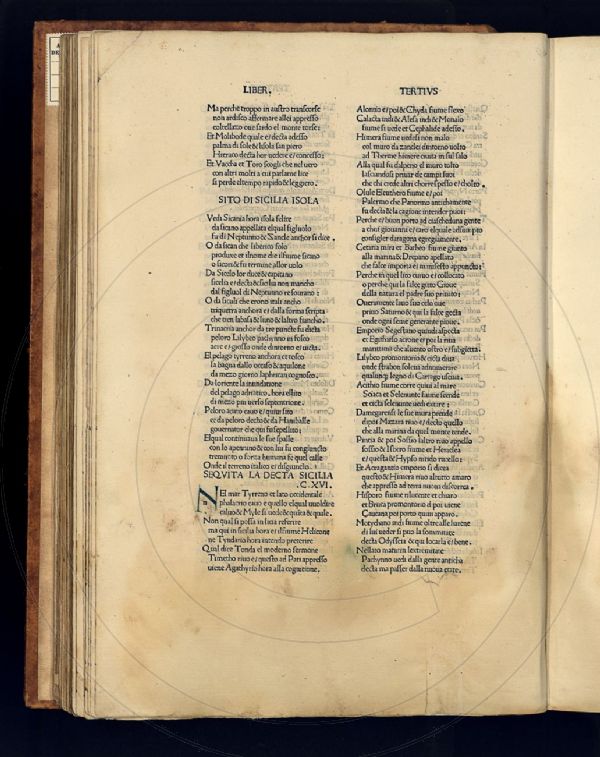 LIBER.
TERTIVS
Ma perche troppo in austro transcorse
non ardisco affermare allei appresso
coltellazo oue sardo el monte torse:
Et Molabode quale e/decta adesso
palma di sole & lisola san piero
Hieraco decta her uedere e/concesso:
Et Vaccha et Toro scogli che nel uero
con altri molti a cui parlarne lice
si perde eltempo rapido & leggiero.
SITO DI SICILIA ISOLA
Veda Sicania hora isola felice
da sicano appellata elqual figliuolo
fu di Neptunno & Sande anchor si dice.
O da sican che liberico solo
produce et ilnome die
o sicori & fu termine allor uolo
Da Sicelo lor duce & capitano
sicelia e/decta & sicilia non mancho
dal figliuol di Neptunno re sourano:
O da siculi che erono itali ancho
triquerra anchora e/ dalla forma scripta
che tien labasa & luno & laltro fiancho.
Trinacria anchor da tre puncte fu dicta
peloro Lilybeo pachynno in fosco
aere e/grosso onde dintorno e/uicta.
El pelago tyrreno anchora et tosco
la bagna dallo occaso & aquilone
da mezo giorno laphrican cognosco.
Da loriente la inundatione
del pelago adriatico. hora ellito
di mezo piu uerso septentrione.
Peloro acuto euuo e/ quiui sito
et da peloro decto & da Hanniballe
gouernator che qui fusepellito:
Elqual continuaua le sue spalle
con lo apennino & con lui fu congiuncto
tremuoto o forza humana fe quel calle
Onde al terreno italico e/disgiuncto. :
SEQVITA LA DECTA SICILIA
.C. XVI.
NEl mar Tyrreno et lato occidentale
phalacrio euuo e quello elqual uuol dire
caluo & Myle si uede & quita & quale.
Non qual si possa in lusa referire
ma qui in sicilia hora el fiume Helicone
ne Tyndaria hora intendo preterire
Qual dire Tonda el moderno sermone
Timetho riuo e/questo ad Pati appresso
uiene Agathyrso hora alla cognitione.
Alontio e/poi & Chyda fiume flexo
Calacta indi & Alesa indi & Monalo
fiume si uede et Cephalide adesso.
Himera fiume uedesi non malo
col muro da zanclei dintorno uolto
ad Therme himere ciuita in sul salo
Alla qual fu dalpeno el muro tolto
lasciandosi priuar de campi suoi
che chi crede altri chor respesso e/cholto.
Olule Eleuthero fiume e/poi
Palermo che Panormo antichamente
fu decta & la cagione intender puoi:
Perche e/buon porto ad ciascheduna gente
a chui giouanni e/caro elquale
consiglier daragona egregiamente.
Cetaria mira et Barheo fiume giunto
alla marina & Drepano apellato
che falce importa et manifesto appuncto:
Perche in quel lito curuo e/collocato
o perche qui la falce gitto Gioue
della natura el padre suo priuato:
Oueramente lauo suo celo oue
primo Saturno & qui la falce gecta
onde ogni seme generante pioue.
Emporio Segestano quindi aspecta
et Egitharso acrone e/por la riua
maritima che aluento ostro e/subgiecta.
Lilybeo promontorio & cicta diua
onde strabon soleua adnumerare
qualunque legno di Cartago usciua.
Acitho fiume corre quiui al mare
Sciaca et Selenunte fiume seende
et cicta selenunte uedi estare:
Damegarensi le sue mura prende
dipoi Mazara riuo e/decto quello
che alla marina da quel monte tende.
Pintia & poi Sossio laltro riuo appello
sossio & Isboro fiume et Heraclea
e/questa & Hypso nitido riuello:
Et Acragantio emporio si dicea
questo & Himera riuo altrucro amaro
che appresso ad terra nuoua discorrea.
Hisporo fiume rilucente et chiaro
et Bruca promontorio di poi uiene
Caucana per porto quini apparo.
Motychano indi fiume oltre alle harene
di lui ueder si puo la sommitate
decta Odyssera & qui locarla e/bene.
Nellato maturin lextremitate
Pachynno uecla dalla gente anticha
decta ma passer dalla nuoua etate.